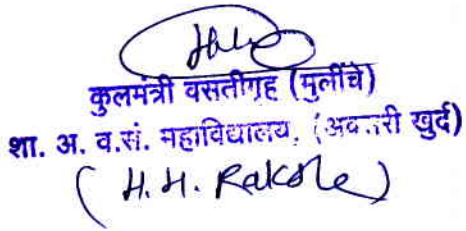 कुलमंत्री वसतीगृह (मुलींचे)
शा. अ. व.सं. महाविद्यालय, (अवसरी खुर्द)
(H. H. Rakshe)